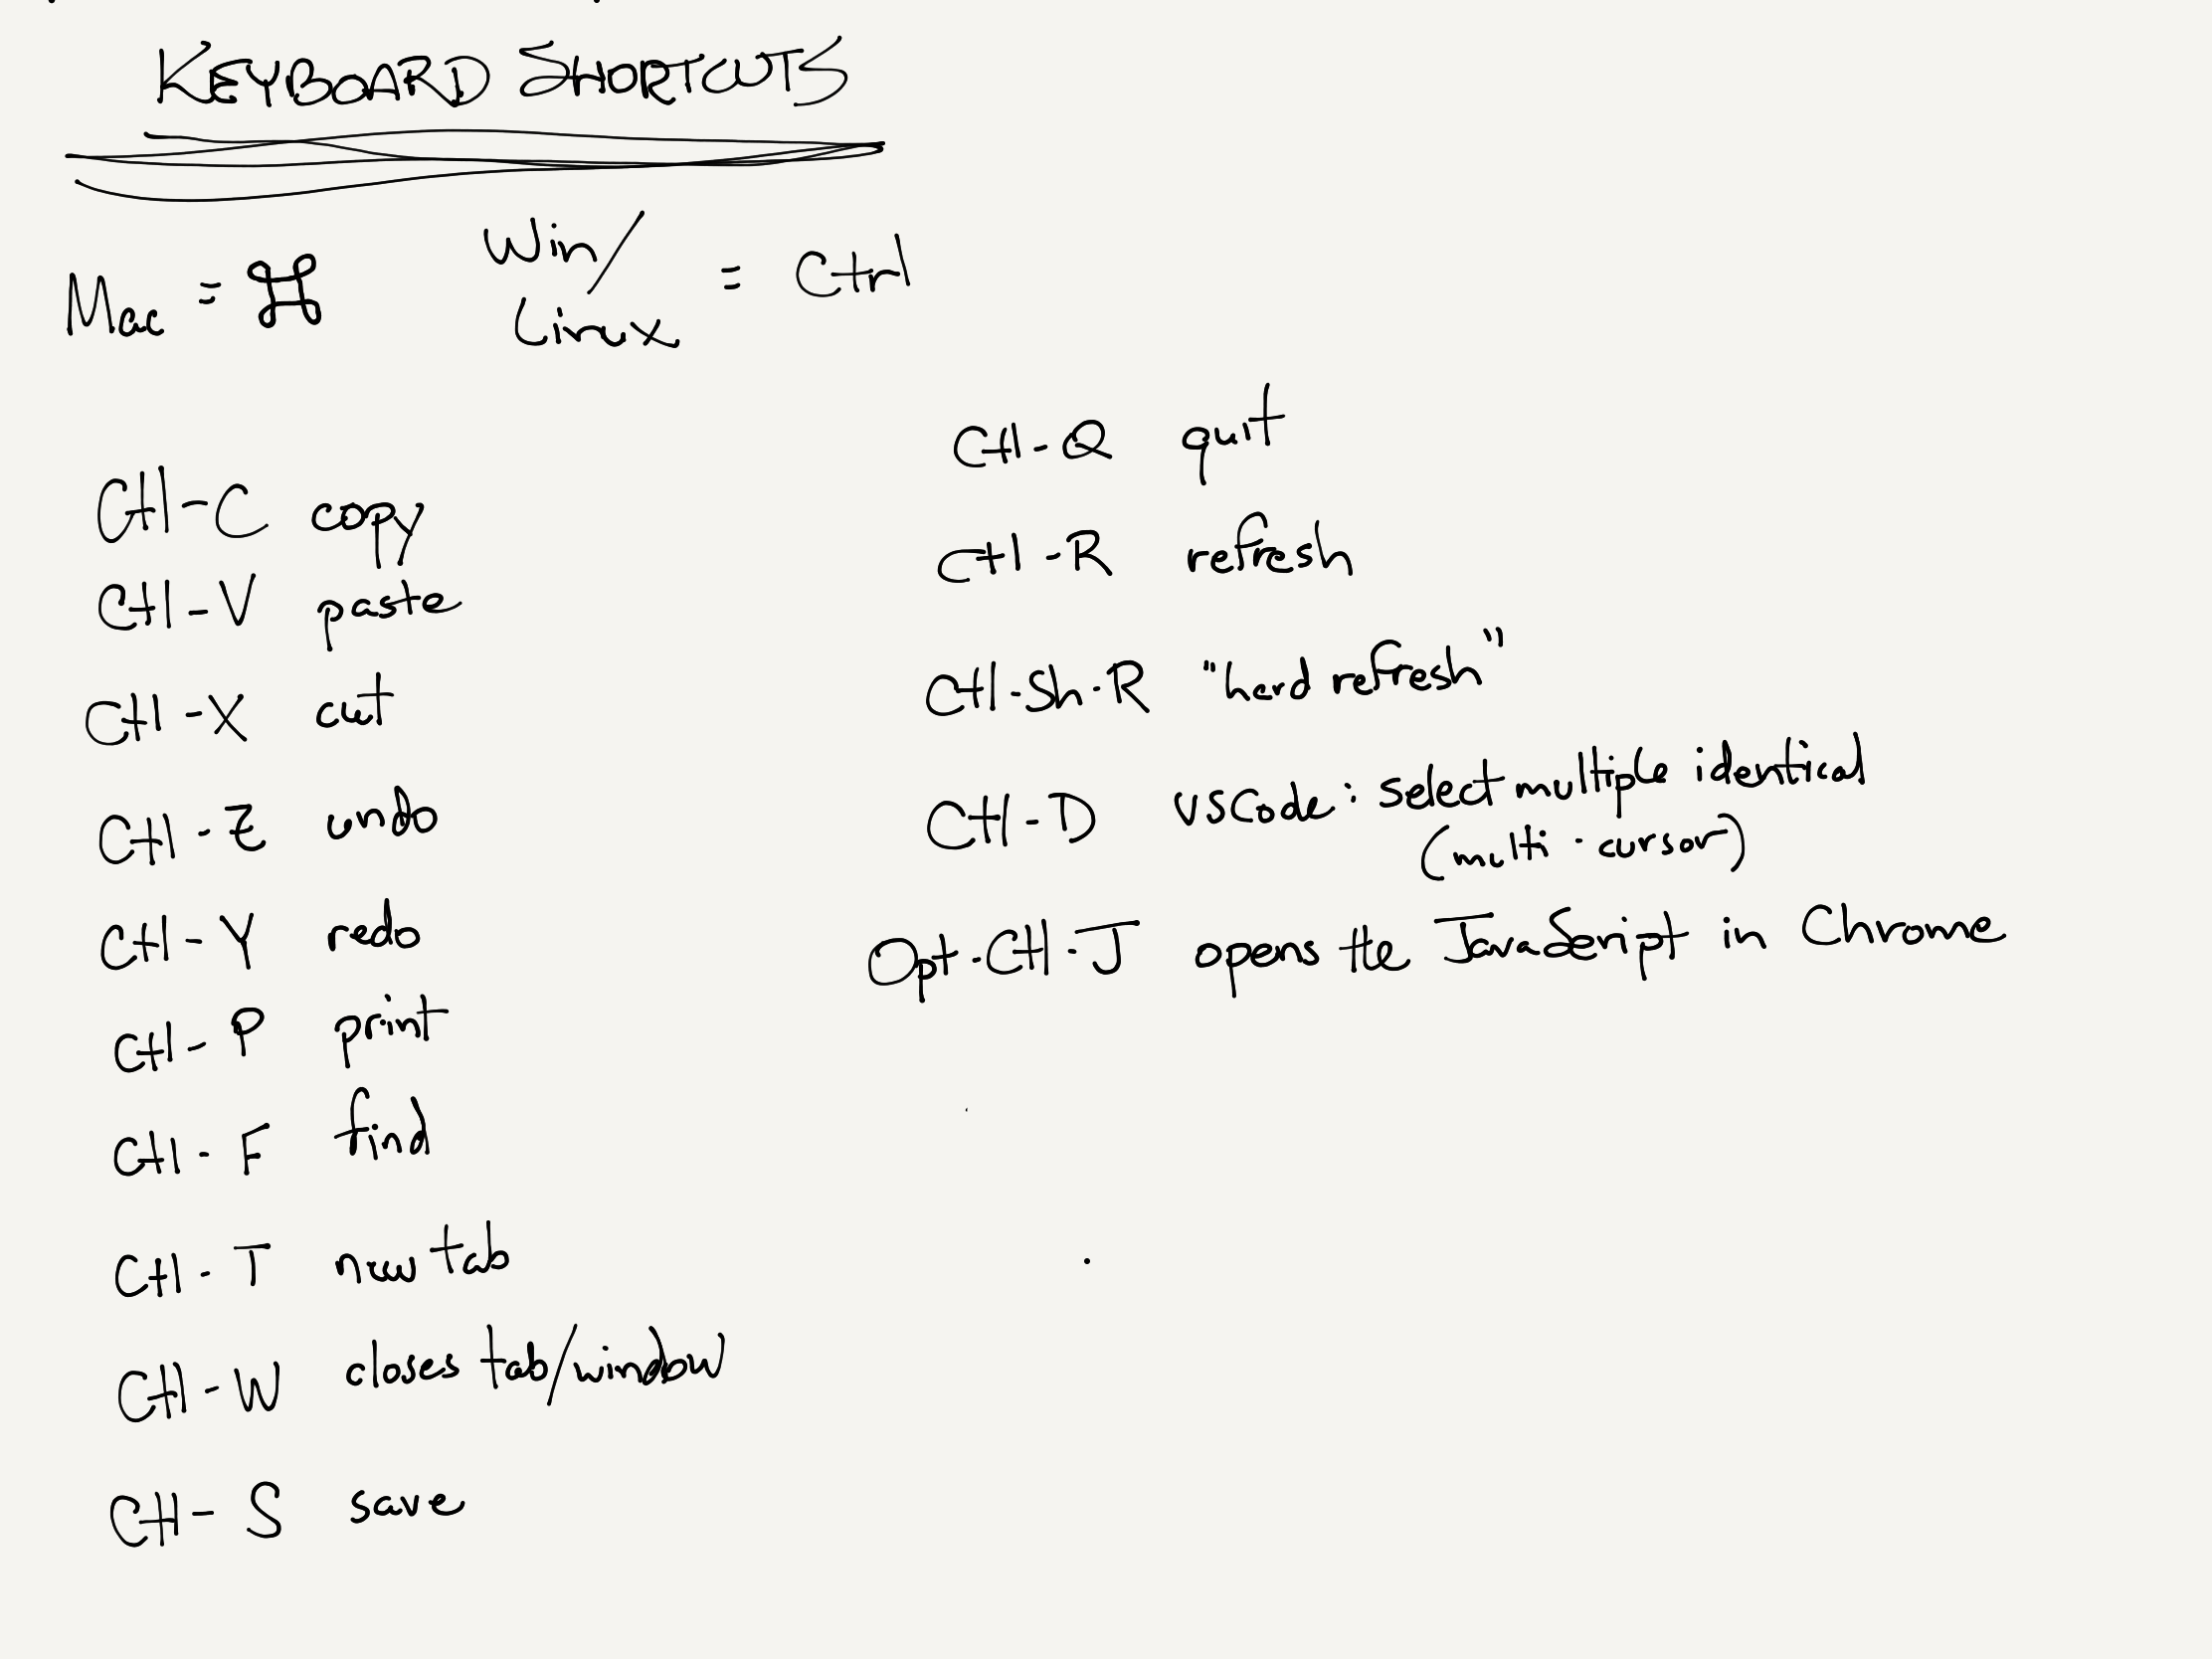 KEYBOARD SHORTCUTS
Mac = ⌘ Win/Linux = Ctrl
Ctl-C copy
Ctl-V paste
Ctl-X cut
Ctl-Z undo
Ctl-Y redo
Ctl-P print
Ctl-F find
Ctl-T new tab
Ctl-W closes tab/window
Ctl-S save
Ctl-Q quit
Ctl-R refresh
Ctl-Sh-R "hard refresh"
Ctl-D VSCode: select multiple identical
(multi-cursor)
Opt-Ctl-J opens the JavaScript in Chrome